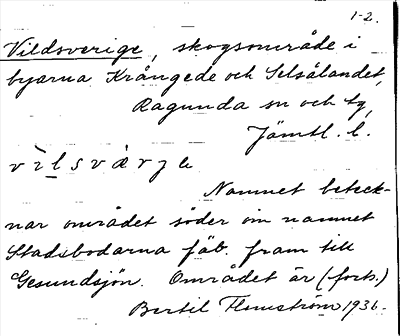 1-2.
Vildsverige, skogsområde i
byarna Krångede och Selsålandet,
Ragunda sn och tg,
Jämtl. l.
vìlsvàrje
Namnet beteck-
nar området söder om namnet
Stadsbodarna fäb. fram till
Gesundsjön. Området är (forts.)
Bertil Flemström 1936.